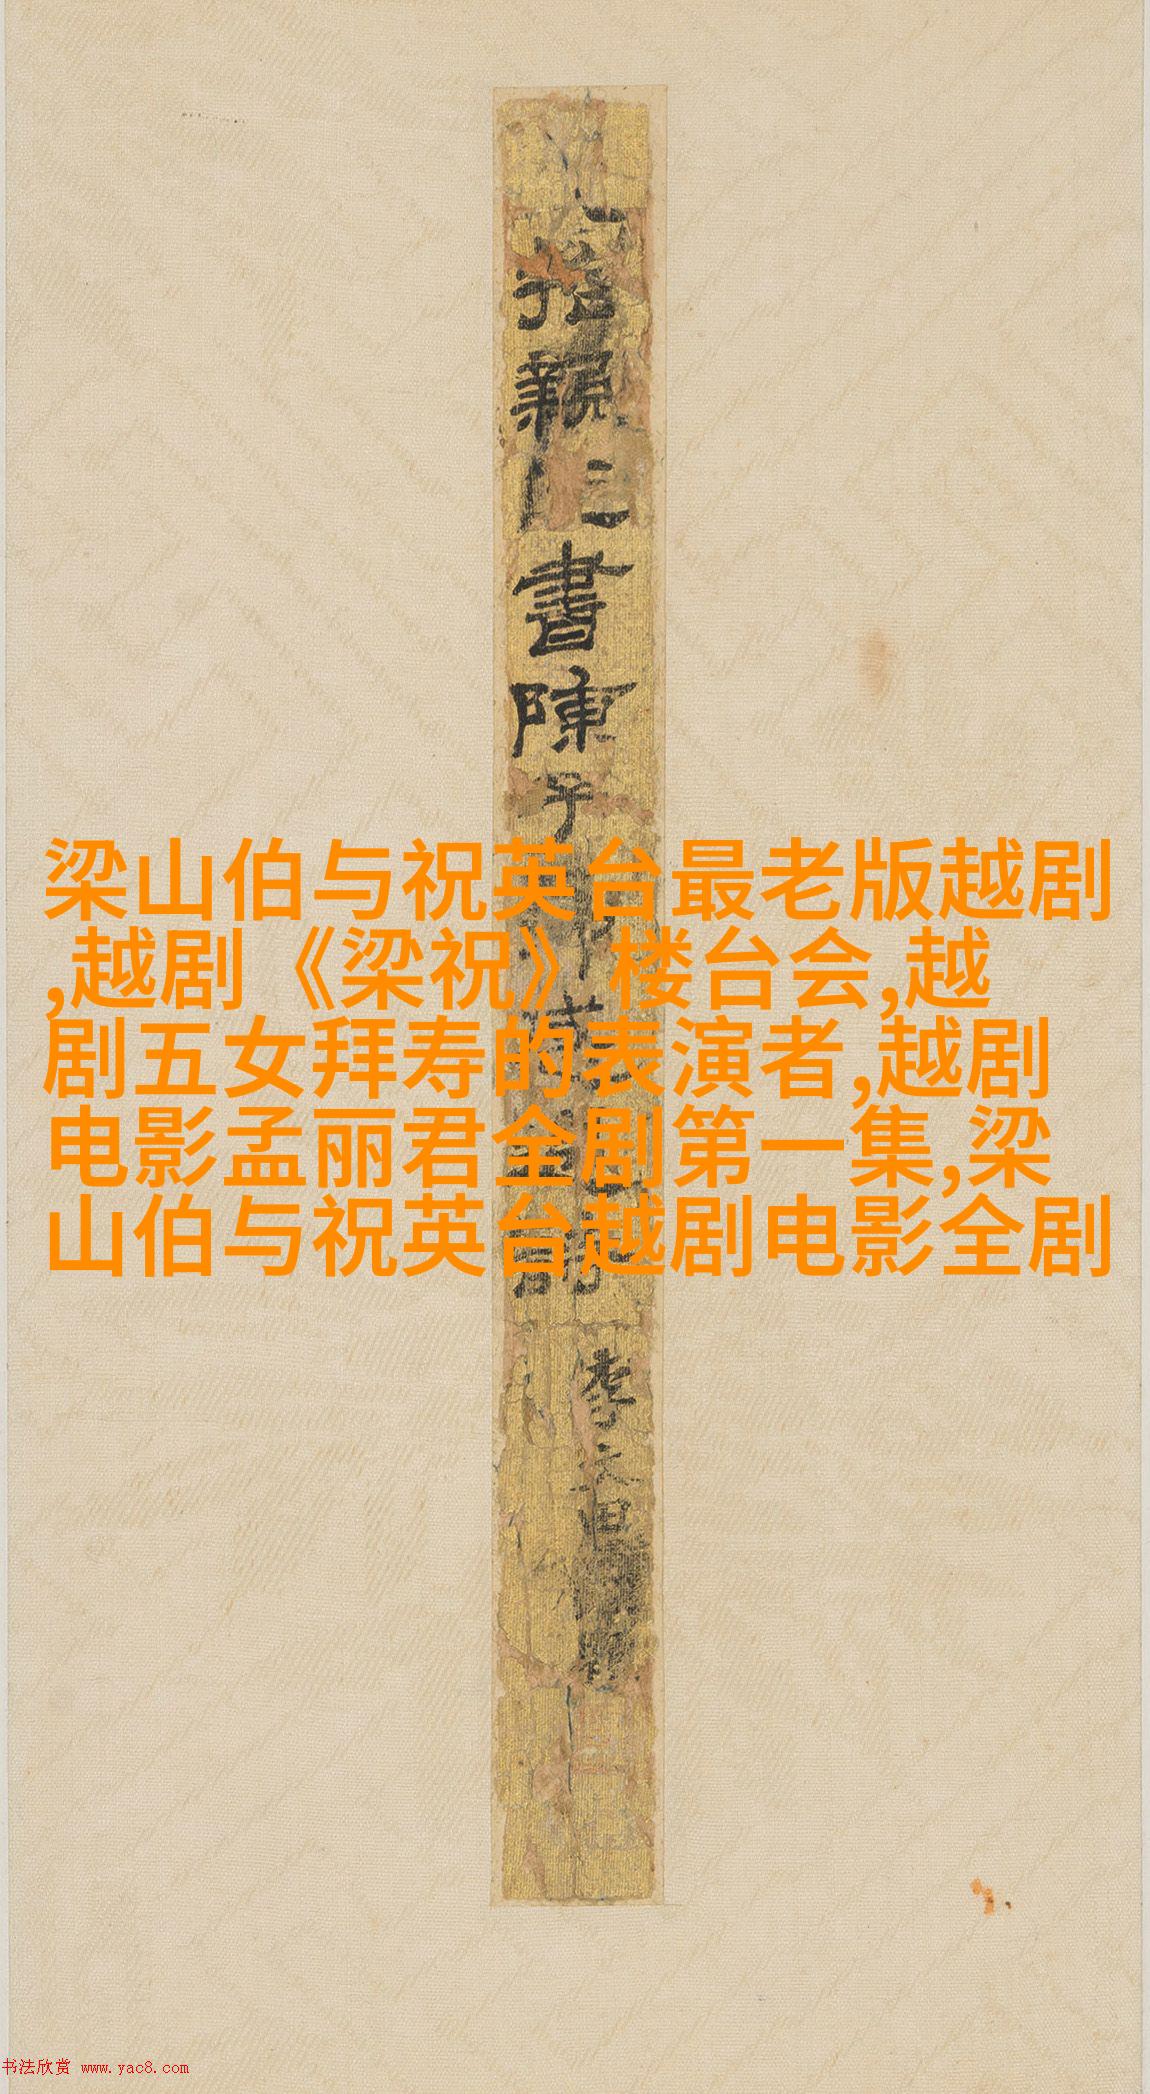 梁山伯与祝英台最老版越剧
,越剧《梁祝》楼台会,越
剧五女拜寿的表演者,越剧
电影孟丽君全剧第一集,梁
山伯与祝英台越剧电影全剧
書陳子
李文田
书法欣赏 www.yac8.com